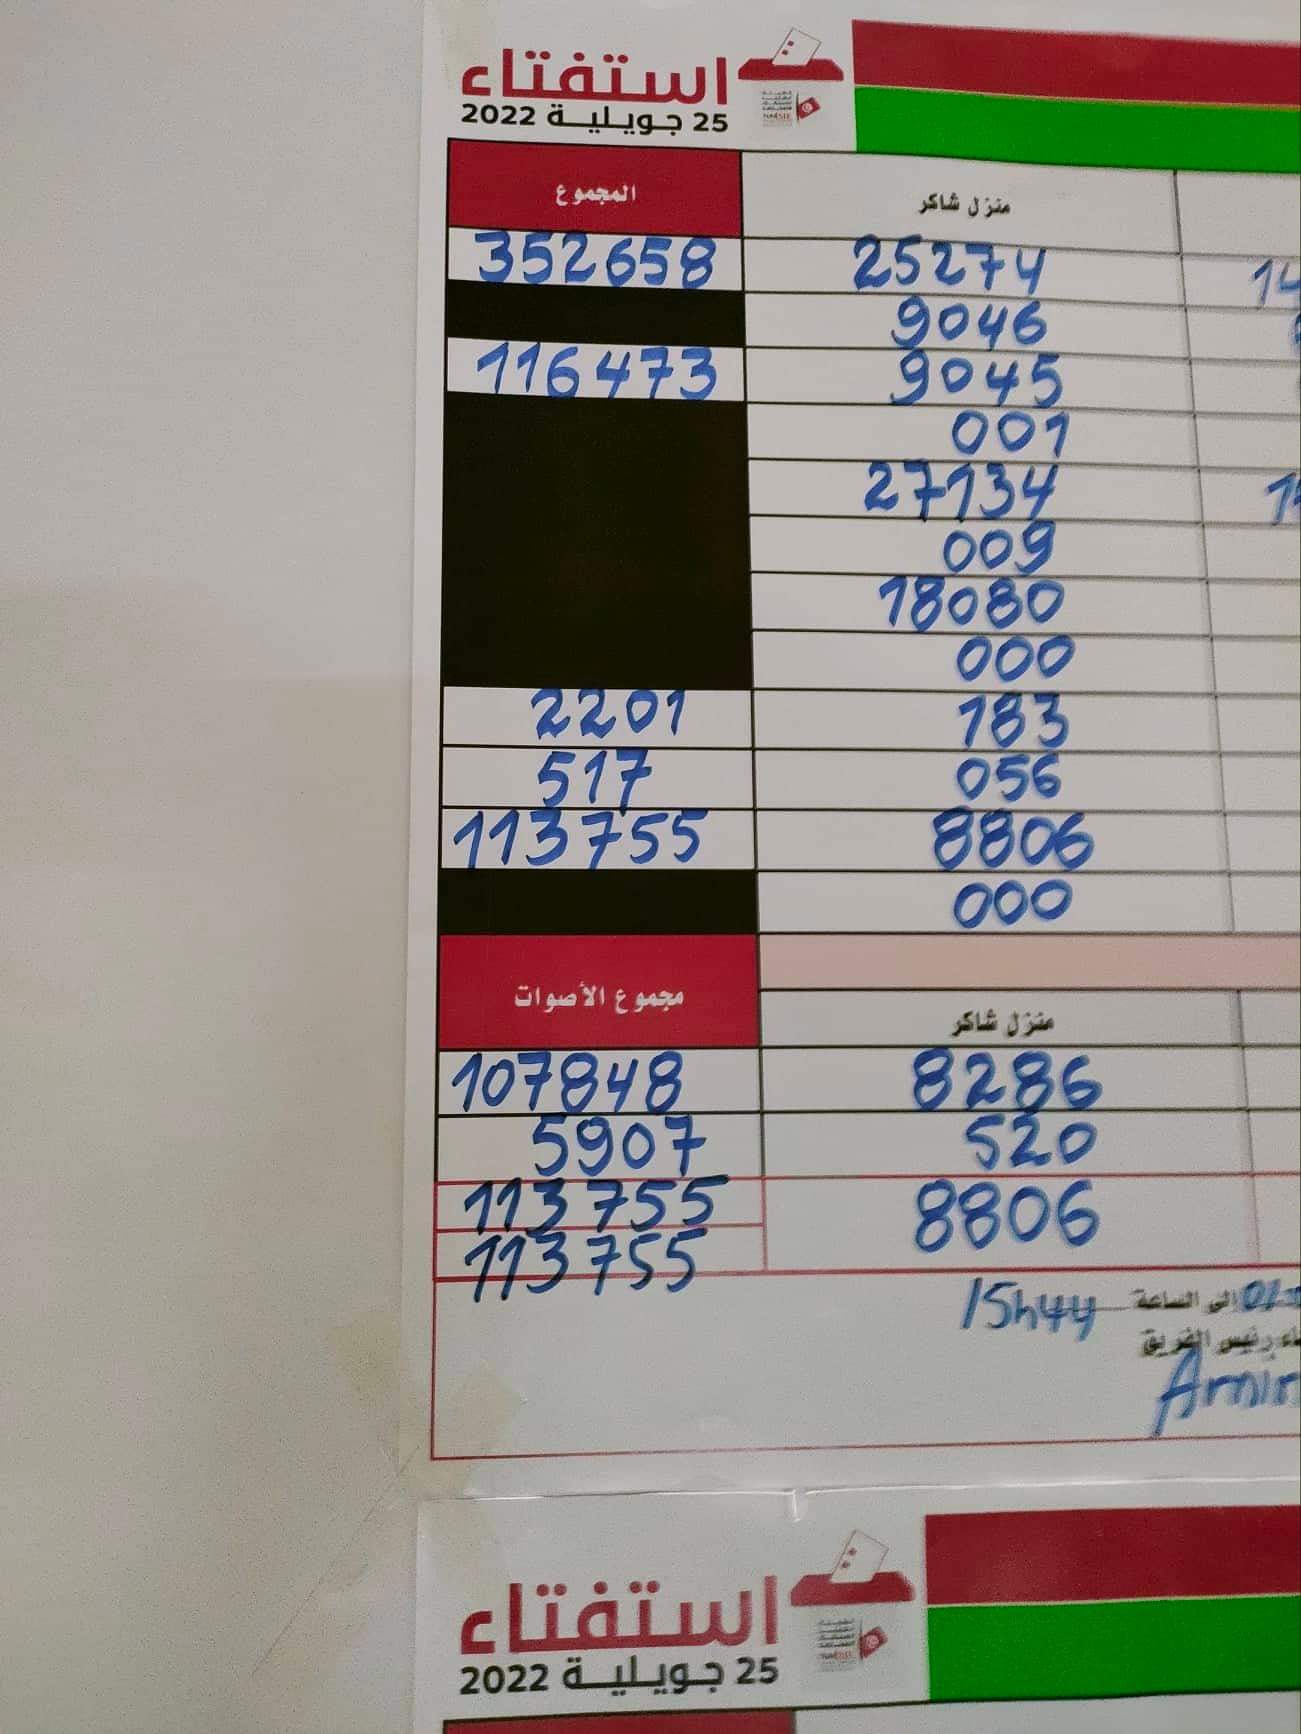 استفتاء
25 جويلية 2022
منزل شاكر المجموع
25274 352658
9046
9045 116473
001
27134
009
18080
000
183 2201
056 517
8806 113755
000
مجموع الأصوات
منزل شاكر
8286 107848
520 5907
8806 113755
113755
إلى الساعة 15h44
رئيس الفريق
استفتاء
25 جويلية 2022